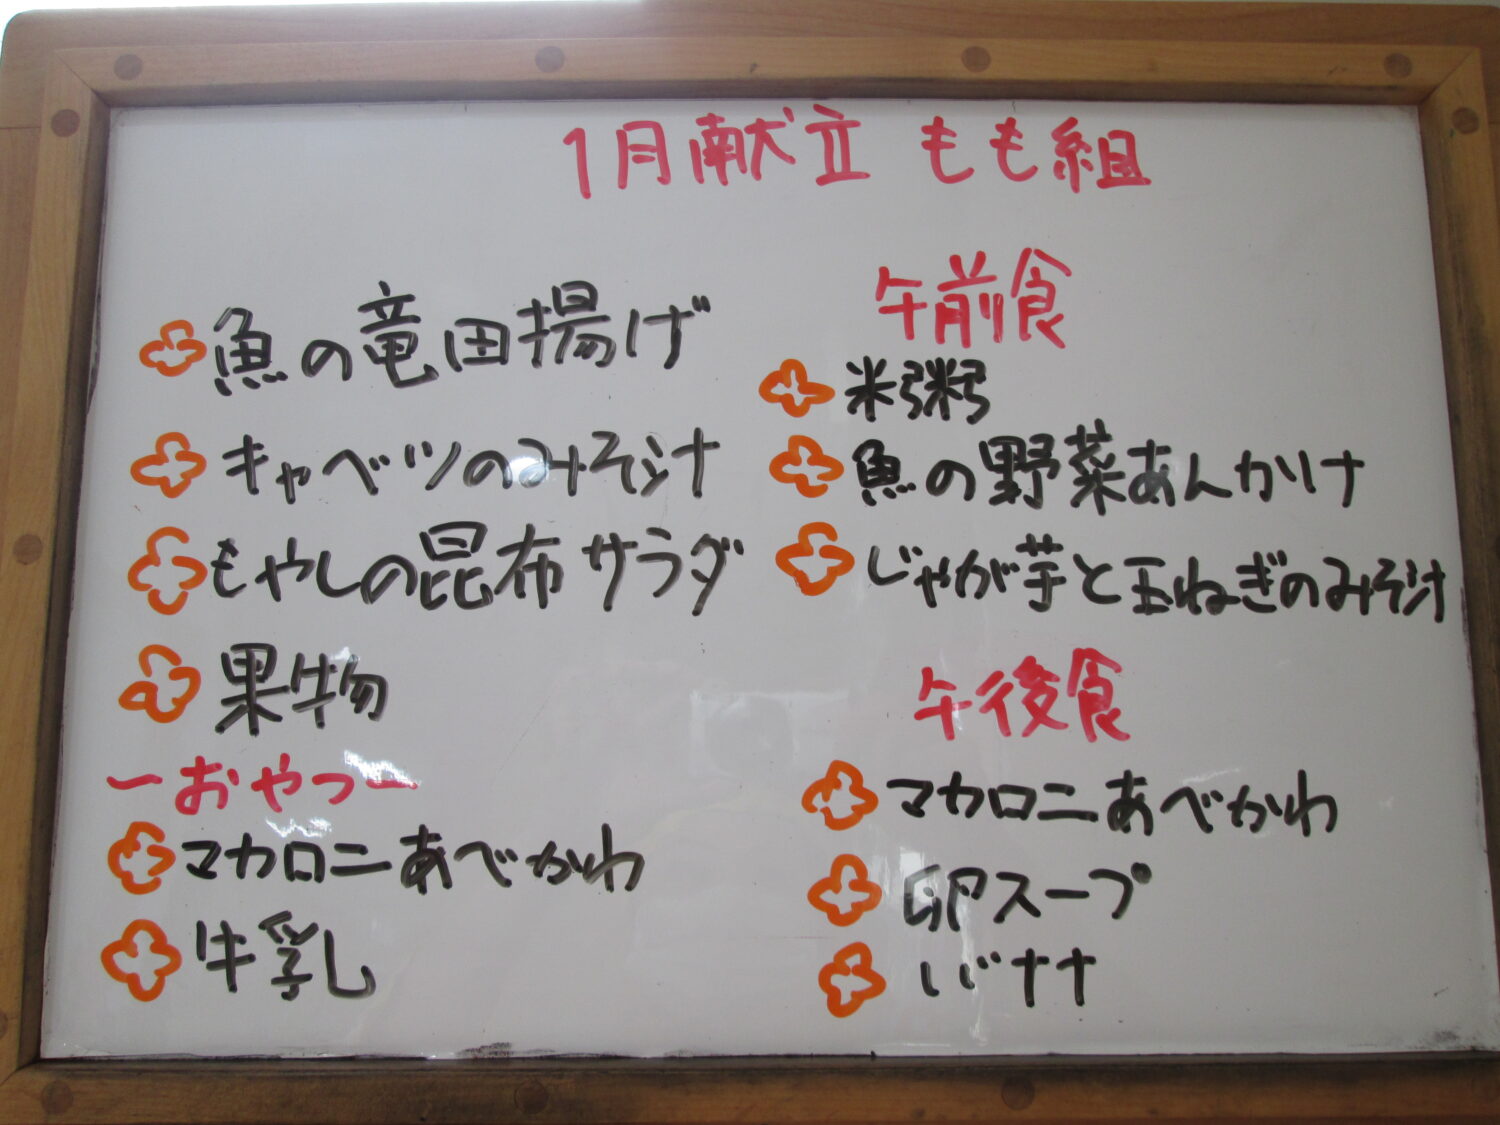 1月献立 もも組
魚の竜田揚げ
キャベツのみそ汁
もやしの昆布サラダ
果物
ーおやつー
マカロニあべかわ
牛乳
午前食
米粥
魚の野菜あんかけ
じゃが芋と玉ねぎのみそ汁
午後食
マカロニあべかわ
卵スープ
バナナ